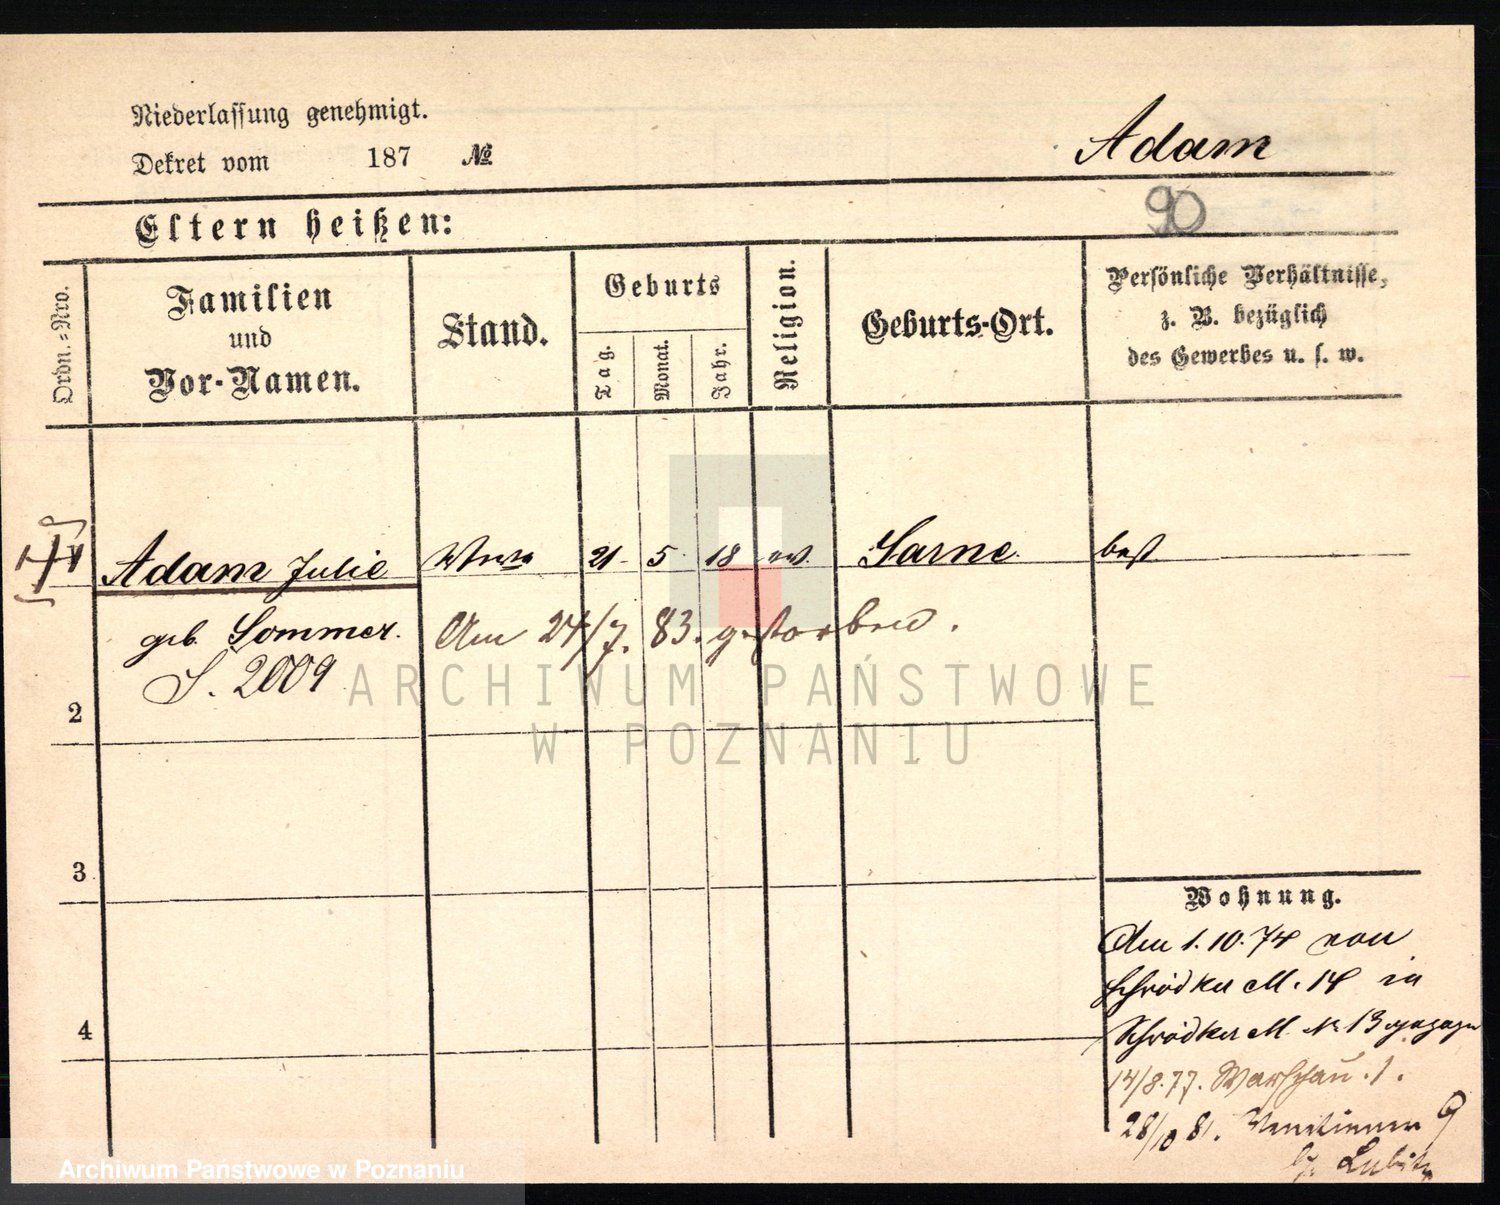 Niederlassung genehmigt.
Dekret vom 187 №
Adam
90
Eltern heißen:
Ordn.-Nro.
Familien
und
Vor-Namen.
Stand.
Geburts
Tag.
Monat.
Jahr.
Religion.
Geburts-Ort.
Persönliche Verhältnisse,
z. B. bezüglich
des Gewerbes u. s. w.
1 Adam Julie Wwe 21 5 18 ev. Sarne
geb. Sommer.
Am 24/7. 83. gestorben.
S. 2009
2
3
4
Wohnung.
Am 1. 10. 74 von
Schrodker M. 14 in
Schrodker M. № 13
14/8.77. Warschau. 1.
28/10 81. 9
ARCHIWUM PAŃSTWOWE
W POZNANIU
Archiwum Państwowe w Poznaniu